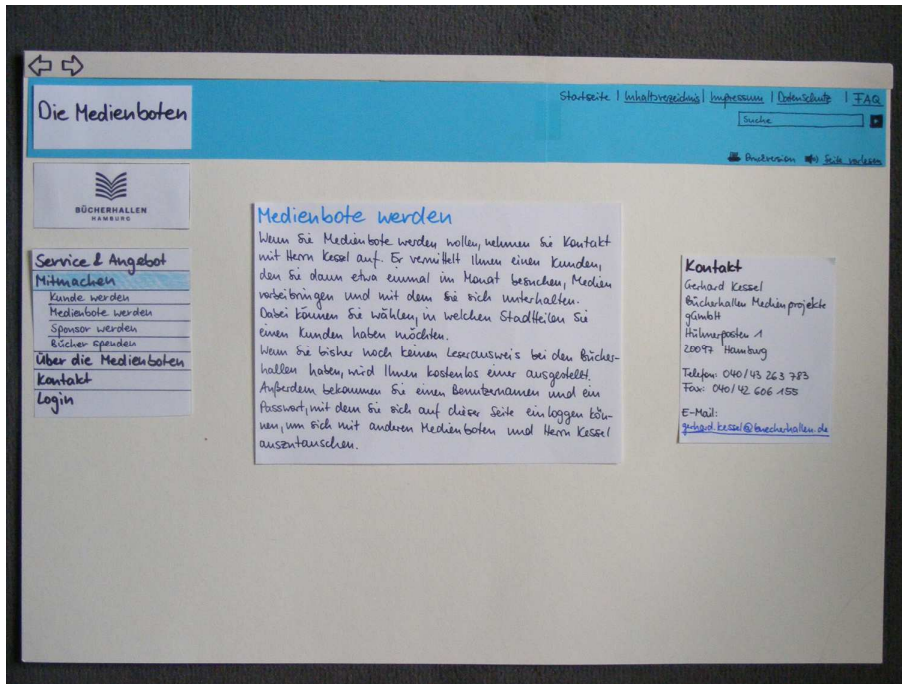 Die Medienboten
Startseite | Inhaltsverzeichnis | Impressum | Datenschutz | FAQ
Suche
Druckversion Seite vorlesen
BÜCHERHALLEN
HAMBURG
Service & Angebot
Mitmachen
Kunde werden
Medienbote werden
Sponsor werden
Bücher spenden
Über die Medienboten
Kontakt
Login
Medienbote werden
Wenn Sie Medienbote werden wollen, nehmen Sie Kontakt
mit Herrn Kessel auf. Er vermittelt Ihnen einen Kunden,
den Sie dann etwa einmal im Monat besuchen, Medien
vorbeibringen und mit dem Sie sich unterhalten.
Dabei können Sie wählen, in welchen Stadtteilen Sie
einen Kunden haben möchten.
Wenn Sie bisher noch keinen Leserausweis bei den Bücher-
hallen haben, wird Ihnen kostenlos einer ausgestellt.
Außerdem bekommen Sie einen Benutzernamen und ein
Passwort, mit dem Sie sich auf dieser Seite einloggen kön-
nen, um sich mit anderen Medienboten und Herrn Kessel
auszutauschen.
Kontakt
Gerhard Kessel
Bücherhallen Medienprojekte
gGmbH
Hühnerposten 1
20097 Hamburg
Telefon: 040/43 263 783
Fax: 040/42 606 155
E-Mail:
gerhard.kessel@buecherhallen.de